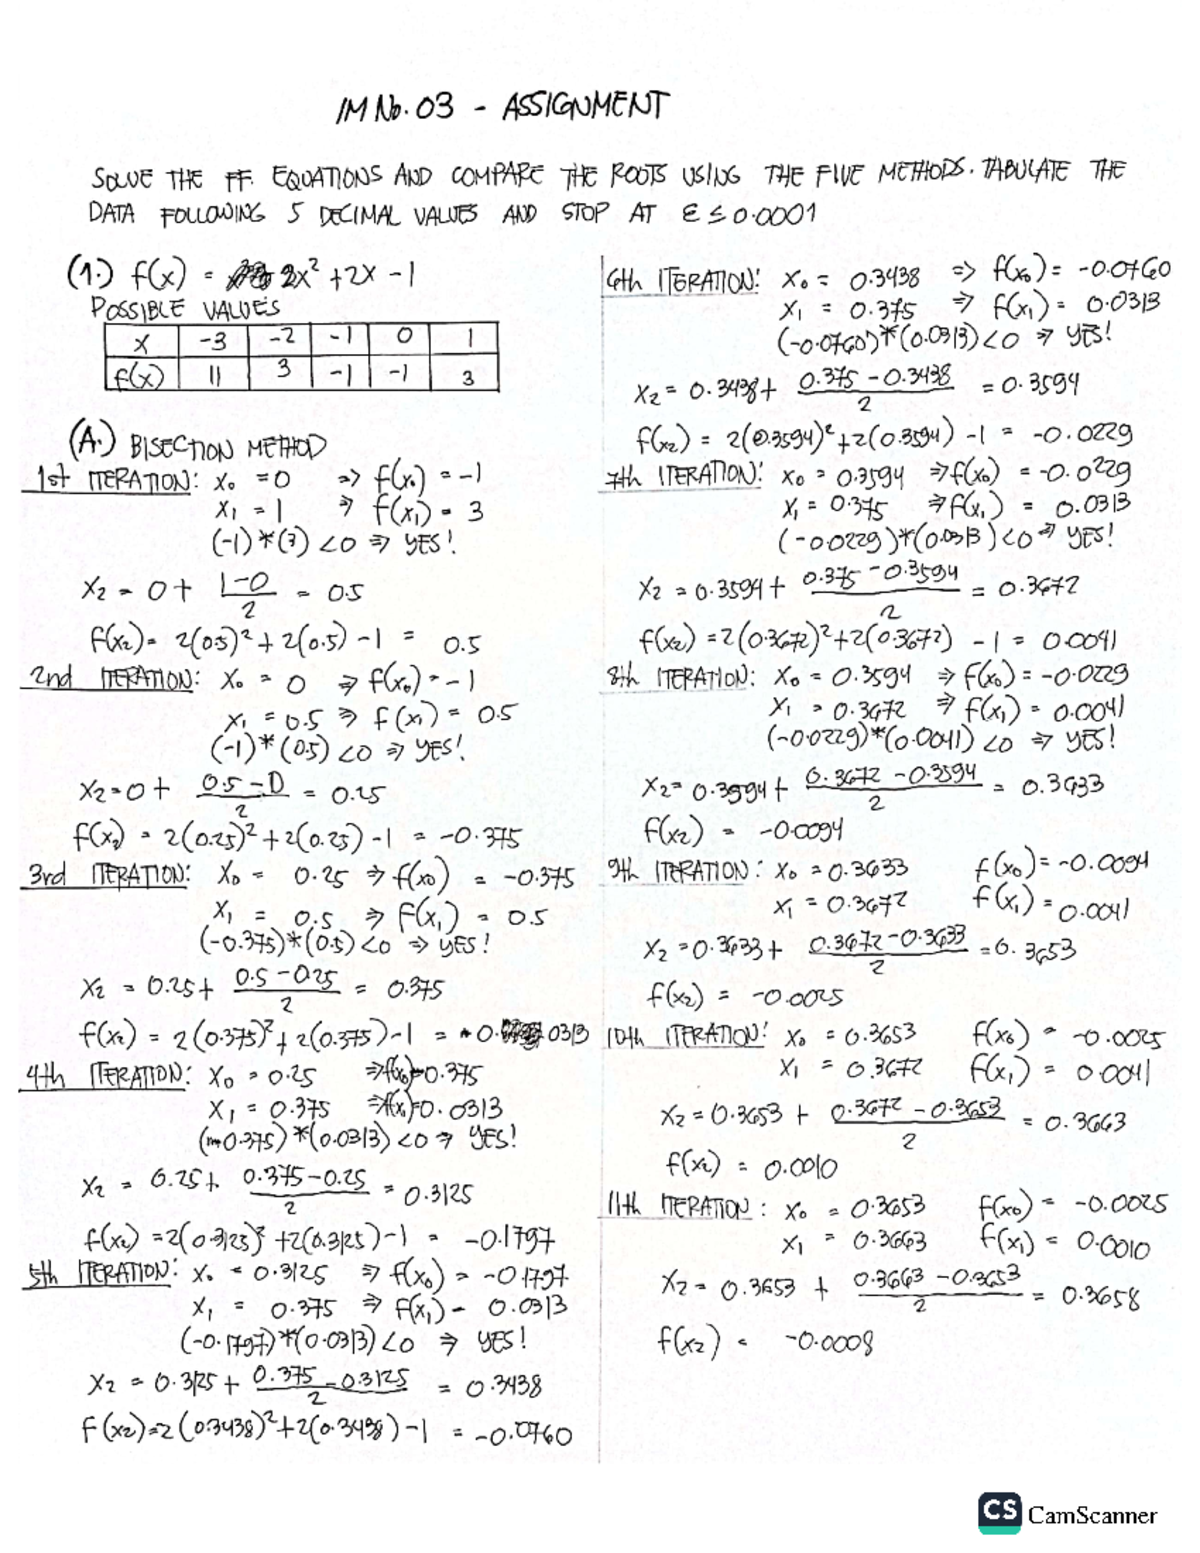 IM No. 03 - ASSIGNMENT
SOLVE THE FF. EQUATIONS AND COMPARE THE ROOTS USING THE FIVE METHODS. TABULATE THE
DATA FOLLOWING 5 DECIMAL VALUES AND STOP AT ε ≤ 0.0001
(1.) f(x) = 2x² + 2x - 1
POSSIBLE VALUES
x -3 -2 -1 0 1
f(x) 11 3 -1 -1 3
(A.) BISECTION METHOD
1st ITERATION: x₀ = 0 ⇒ f(x₀) = -1
x₁ = 1 ⇒ f(x₁) = 3
(-1)*(3) < 0 ⇒ YES!
x₂ = 0 + (1-0)/2 = 0.5
f(x₂) = 2(0.5)² + 2(0.5) - 1 = 0.5
2nd ITERATION: x₀ = 0 ⇒ f(x₀) = -1
x₁ = 0.5 ⇒ f(x₁) = 0.5
(-1)*(0.5) < 0 ⇒ YES!
x₂ = 0 + (0.5-0)/2 = 0.25
f(x₂) = 2(0.25)² + 2(0.25) - 1 = -0.375
3rd ITERATION: x₀ = 0.25 ⇒ f(x₀) = -0.375
x₁ = 0.5 ⇒ f(x₁) = 0.5
(-0.375)*(0.5) < 0 ⇒ YES!
x₂ = 0.25 + (0.5-0.25)/2 = 0.375
f(x₂) = 2(0.375)² + 2(0.375) - 1 = 0.0313
4th ITERATION: x₀ = 0.25 ⇒ f(x₀) = -0.375
x₁ = 0.375 ⇒ f(x₁) = 0.0313
(-0.375)*(0.0313) < 0 ⇒ YES!
x₂ = 0.25 + (0.375-0.25)/2 = 0.3125
f(x₂) = 2(0.3125)² + 2(0.3125) - 1 = -0.1797
5th ITERATION: x₀ = 0.3125 ⇒ f(x₀) = -0.1797
x₁ = 0.375 ⇒ f(x₁) = 0.0313
(-0.1797)*(0.0313) < 0 ⇒ YES!
x₂ = 0.3125 + (0.375-0.3125)/2 = 0.3438
f(x₂) = 2(0.3438)² + 2(0.3438) - 1 = -0.0760
6th ITERATION: x₀ = 0.3438 ⇒ f(x₀) = -0.0760
x₁ = 0.375 ⇒ f(x₁) = 0.0313
(-0.0760)*(0.0313) < 0 ⇒ YES!
x₂ = 0.3438 + (0.375-0.3438)/2 = 0.3594
f(x₂) = 2(0.3594)² + 2(0.3594) - 1 = -0.0229
7th ITERATION: x₀ = 0.3594 ⇒ f(x₀) = -0.0229
x₁ = 0.375 ⇒ f(x₁) = 0.0313
(-0.0229)*(0.0313) < 0 ⇒ YES!
x₂ = 0.3594 + (0.375-0.3594)/2 = 0.3672
f(x₂) = 2(0.3672)² + 2(0.3672) - 1 = 0.0041
8th ITERATION: x₀ = 0.3594 ⇒ f(x₀) = -0.0229
x₁ = 0.3672 ⇒ f(x₁) = 0.0041
(-0.0229)*(0.0041) < 0 ⇒ YES!
x₂ = 0.3594 + (0.3672-0.3594)/2 = 0.3633
f(x₂) = -0.0094
9th ITERATION: x₀ = 0.3633 f(x₀) = -0.0094
x₁ = 0.3672 f(x₁) = 0.0041
x₂ = 0.3633 + (0.3672-0.3633)/2 = 0.3653
f(x₂) = -0.0025
10th ITERATION: x₀ = 0.3653 f(x₀) = -0.0025
x₁ = 0.3672 f(x₁) = 0.0041
x₂ = 0.3653 + (0.3672-0.3653)/2 = 0.3663
f(x₂) = 0.0010
11th ITERATION: x₀ = 0.3653 f(x₀) = -0.0025
x₁ = 0.3663 f(x₁) = 0.0010
x₂ = 0.3653 + (0.3663-0.3653)/2 = 0.3658
f(x₂) = -0.0008
CS CamScanner